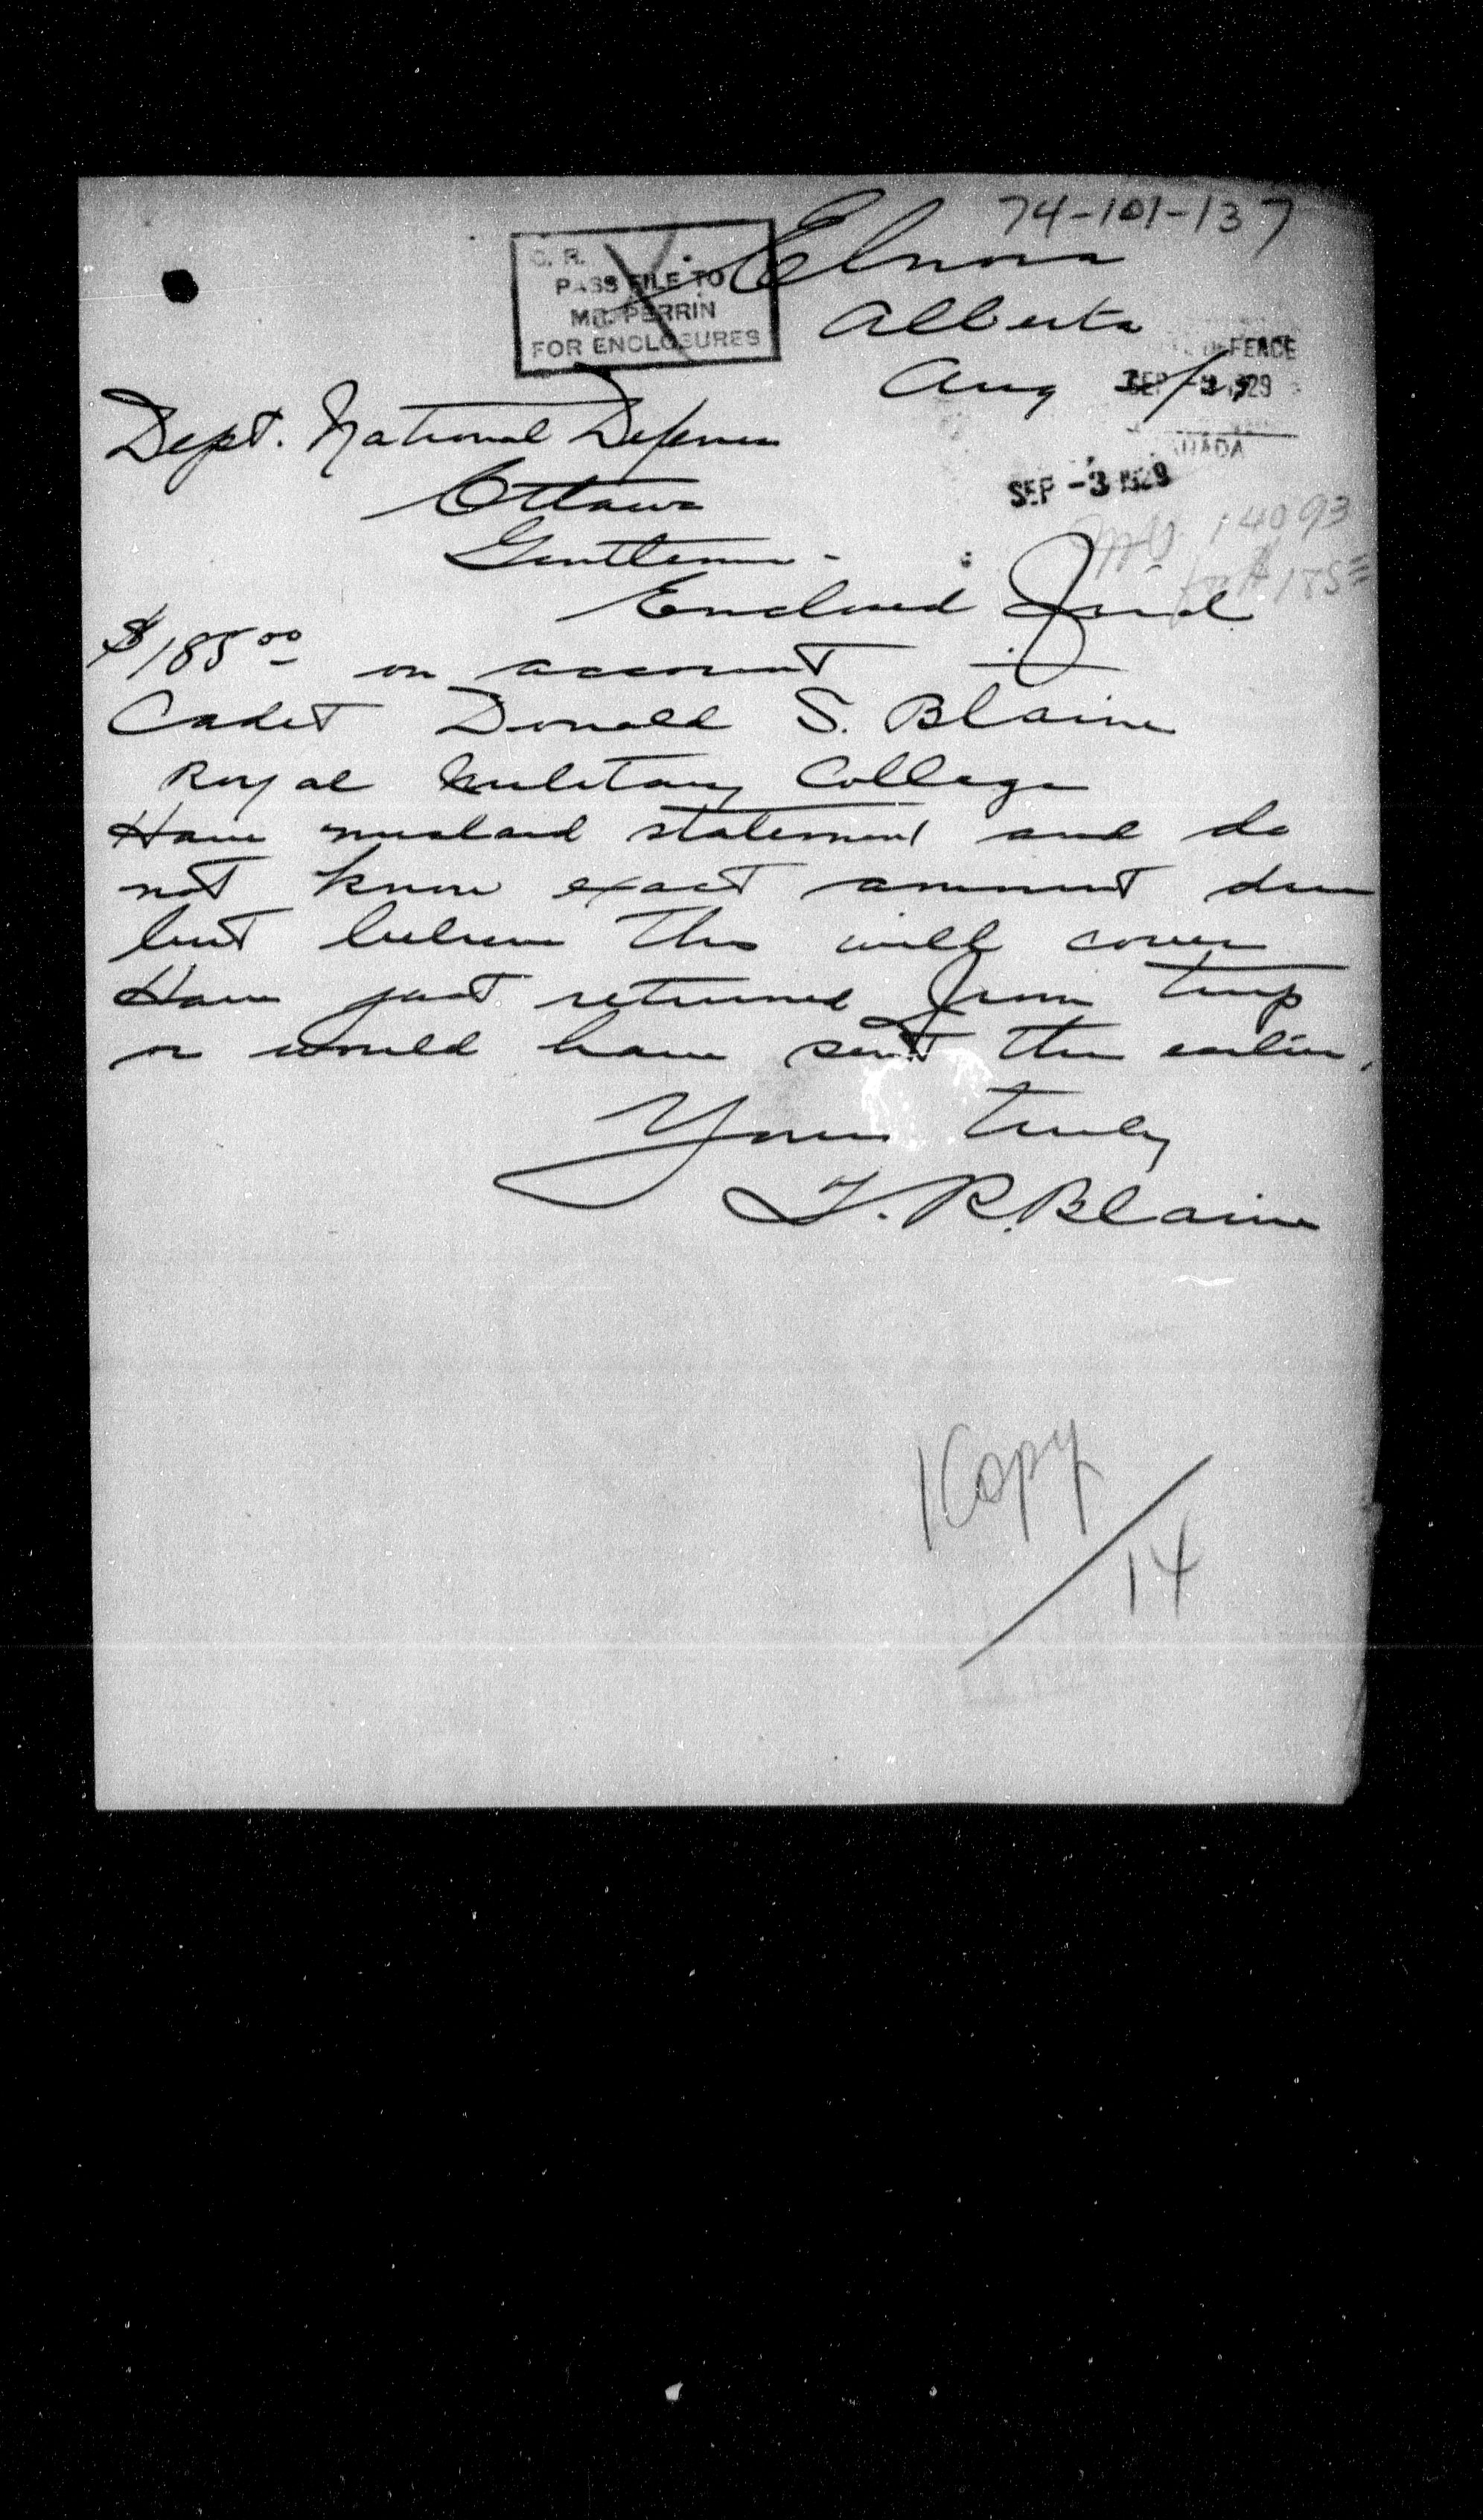 74-101-137
C. R.
PASS FILE TO
MR. PERRIN
FOR ENCLOSURES
Elnora
Alberta
DEFENCE
Aug
SEP -3 1929
CANADA
Dept. National Defence
SEP -3 1929
Ottawa
14093
Gentlemen -
$185
Enclosed find
$185.00 on account
Cadet Donald S. Blaine
Royal Military College
Have mislaid statement and do
not know exact amount due
but believe this will cover
Have just returned from trip
or would have sent this earlier.
Yours truly
F. R. Blaine
1 Copy
14